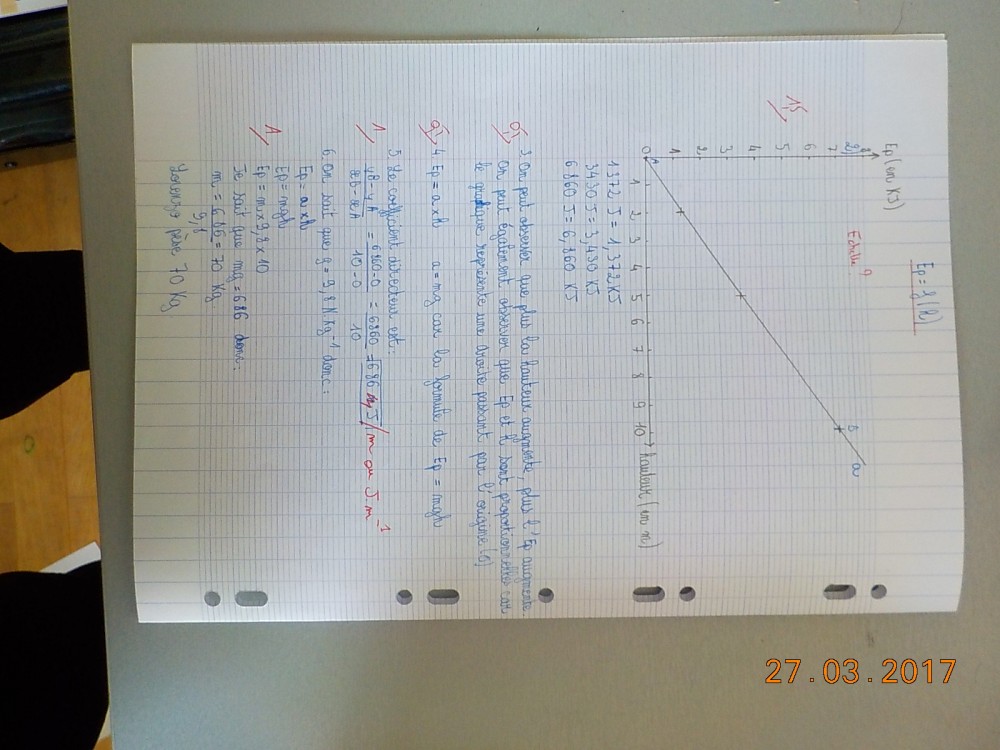 Ep = f(h)
Echelle ?
Ep (en KJ)
8
7
6
5
4
3
2
1
0
1 2 3 4 5 6 7 8 9 10
hauteur (en m)
A
B
a
1,5
1372 J = 1,372 KJ
3430 J = 3,430 KJ
6860 J = 6,860 KJ
0,5
3. On peut observer que plus la hauteur augmente, plus l'Ep augmente.
On peut également observer que Ep et h sont proportionnelles car
le graphique représente une droite passant par l'origine (0)
0,5
4. Ep = a x h a = mg car la formule de Ep = mgh
5. Le coefficient directeur est :
1
yB - yA / xB - xA = 6860 - 0 / 10 - 0 = 6860 / 10 = 686 J/m ou J.m⁻¹
6. On sait que g = 9,8 N.Kg⁻¹ donc :
Ep = a x h
Ep = mgh
1
Ep = m x 9,8 x 10
Je sait que mg = 686 donc :
m = 686 / 9,8 = 70 Kg
Lorenzo pèse 70 Kg.
27.03.2017